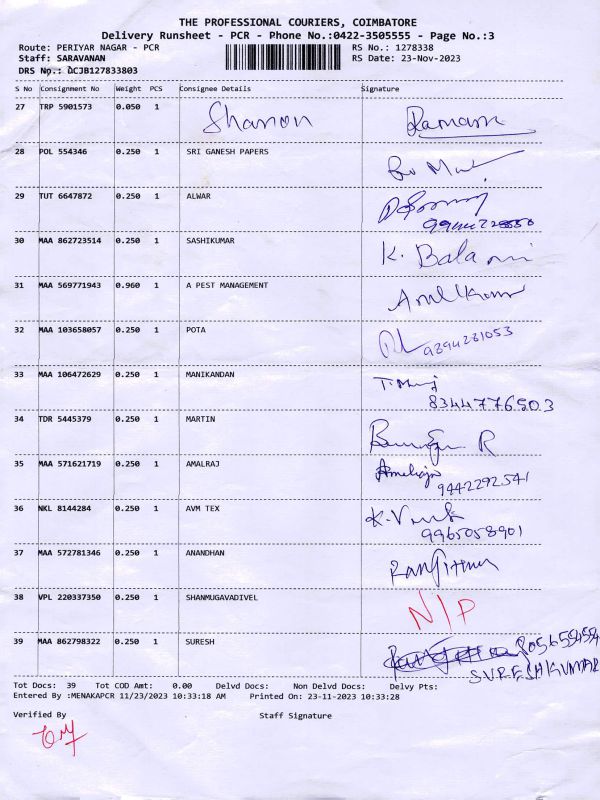 THE PROFESSIONAL COURIERS, COIMBATORE
Delivery Runsheet - PCR - Phone No.:0422-3505555 - Page No.:3
Route: PERIYAR NAGAR - PCR RS No.: 1278338
Staff: SARAVANAN RS Date: 23-Nov-2023
DRS No.: DCJB127833803
S No Consignment No Weight PCS Consignee Details Signature
27 TRP 5901573 0.050 1 Sharon Ramani
28 POL 554346 0.250 1 SRI GANESH PAPERS
29 TUT 6647872 0.250 1 ALWAR
30 MAA 862723514 0.250 1 SASHIKUMAR K. Balamni
31 MAA 569771943 0.960 1 A PEST MANAGEMENT Arulkumar
32 MAA 103658057 0.250 1 POTA 9894281053
33 MAA 106472629 0.250 1 MANIKANDAN
8344776503
34 TDR 5445379 0.250 1 MARTIN
35 MAA 571621719 0.250 1 AMALRAJ Amalraj
9442292541
36 NKL 8144284 0.250 1 AVM TEX
9965058901
37 MAA 572781346 0.250 1 ANANDHAN
38 VPL 220337350 0.250 1 SHANMUGAVADIVEL N/P
39 MAA 862798322 0.250 1 SURESH
SURESHKUMAR
Tot Docs: 39 Tot COD Amt: 0.00 Delvd Docs: Non Delvd Docs: Delvy Pts:
Entered By :MENAKAPCR 11/23/2023 10:33:18 AM Printed On: 23-11-2023 10:33:28
Verified By Staff Signature